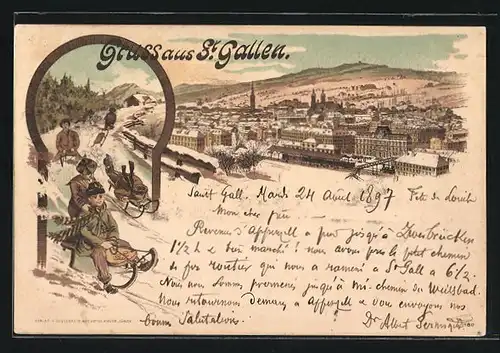 Gruss aus St. Gallen.
Saint Gall. Mardi 24 Août 1897 Fête de Louis
Mon cher père
Revenus d'Appenzell à pied jusqu'à Zweibrücken
1 1/2 h et bon marché! nous avons pris le petit chemin
de fer routier qui nous a ramené à St Gall à 6 1/2.
Nous nous sommes promenés jusqu'à mi-chemin du
Nous retournons demain à Appenzell et vous envoyons nos
bonnes Salutations.
Dr Albert